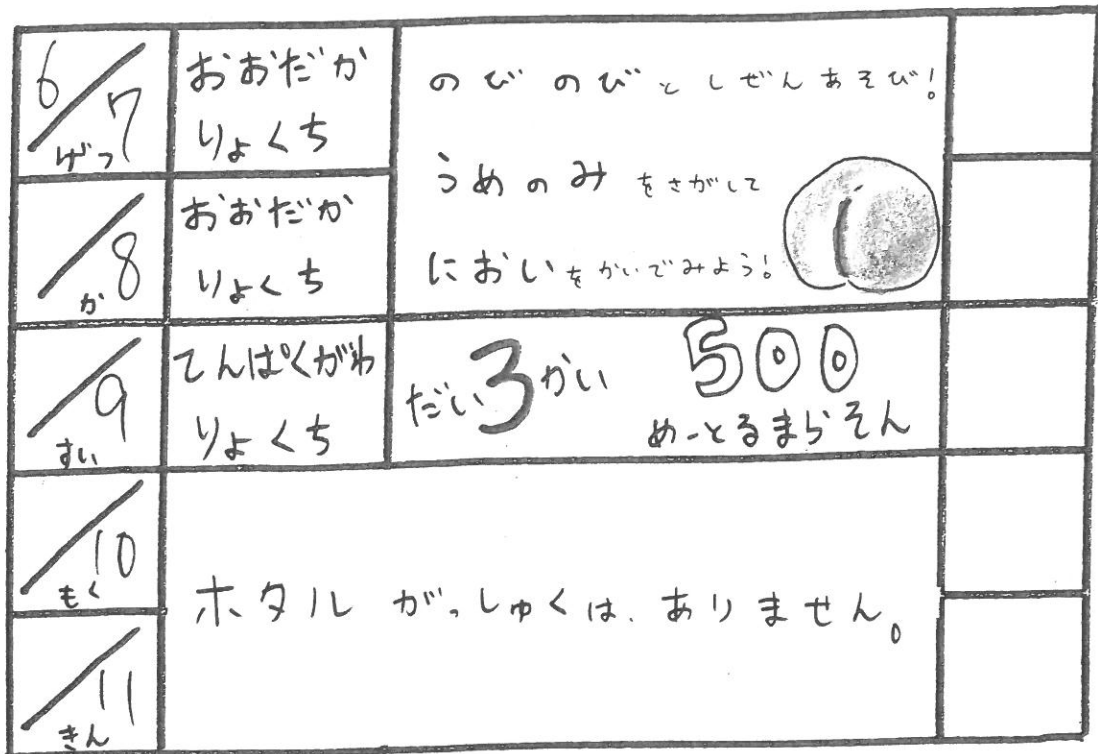 6/7
げつ
おおだか
りょくち
のびのびとしぜんあそび!
うめのみをさがして
においをかいでみよう!
/8
か
おおだか
りょくち
/9
すい
てんぱくがわ
りょくち
だい3かい
500
めーとるまらそん
/10
もく
/11
きん
ホタル がっしゅくは、ありません。